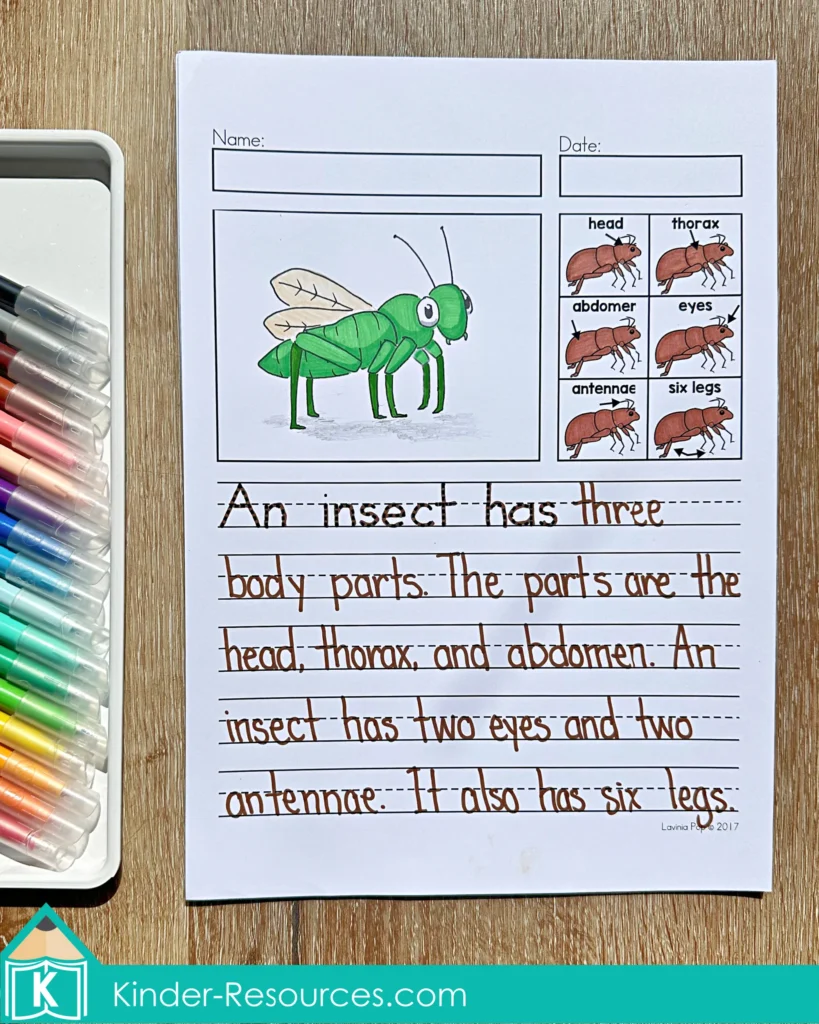 Name:
Date:
head thorax
abdomen eyes
antennae six legs
An insect has three
body parts. The parts are the
head, thorax, and abdomen. An
insect has two eyes and two
antennae. It also has six legs.
Lavinia Pop © 2017
K
Kinder-Resources.com